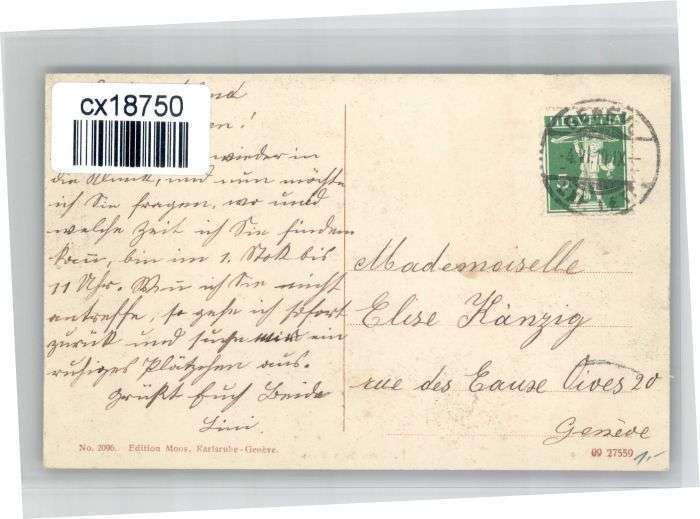 cx18750
wieder in
die Klinik, und nun möchte
ich Sie fragen, wo und
welche Zeit ich Sie finden
kann, bin im 1. Stok bis
11 Uhr. Wenn ich Sie nicht
antreffe, so gehe ich sofort
zurück und suche mir ein
ruhiges Plätzchen aus.
Grüßt Euch Beide
Lini.
Mademoiselle
Elise Känzig
rue des Eause Vives 20
Genève
No. 2096. Edition Moos, Karlsruhe-Genève.
09 27559
1,-